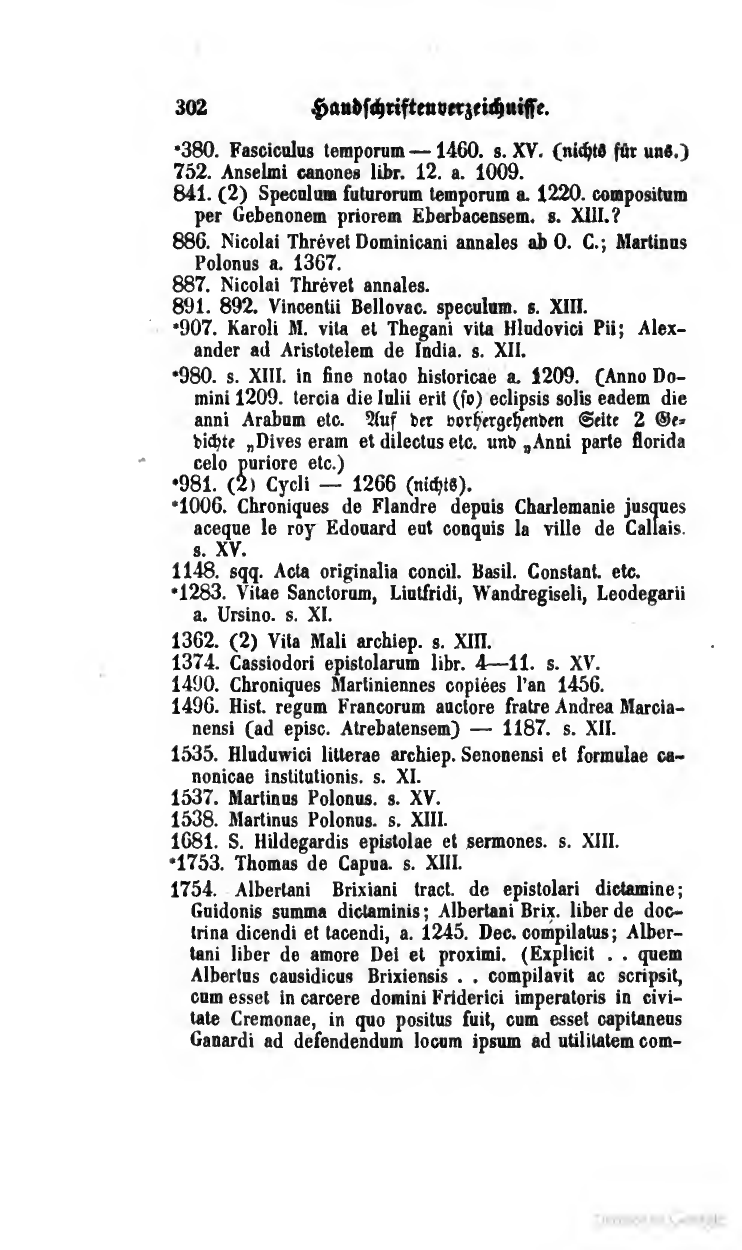 302 Handschriftenverzeichnisse.
*380. Fasciculus temporum — 1460. s. XV. (nichts für uns.)
752. Anselmi canones libr. 12. a. 1009.
841. (2) Speculum futurorum temporum a. 1220. compositum
per Gebenonem priorem Eberbacensem. s. XIII.?
886. Nicolai Thrévet Dominicani annales ab O. C.; Martinus
Polonus a. 1367.
887. Nicolai Thrévet annales.
891. 892. Vincentii Bellovac. speculum. s. XIII.
*907. Karoli M. vita et Thegani vita Hludovici Pii; Alex-
ander ad Aristotelem de India. s. XII.
*980. s. XIII. in fine notae historicae a. 1209. (Anno Do-
mini 1209. tercia die Iulii erit (so) eclipsis solis eadem die
anni Arabum etc. Auf der vorhergehenden Seite 2 Ge-
dichte „Dives eram et dilectus etc. und „Anni parte florida
celo puriore etc.)
*981. (2) Cycli — 1266 (nichts).
*1006. Chroniques de Flandre depuis Charlemanie jusques
aceque le roy Edouard eut conquis la ville de Callais.
s. XV.
1148. sqq. Acta originalia concil. Basil. Constant. etc.
*1283. Vitae Sanctorum, Liutfridi, Wandregiseli, Leodegarii
a. Ursino. s. XI.
1362. (2) Vita Mali archiep. s. XIII.
1374. Cassiodori epistolarum libr. 4—11. s. XV.
1490. Chroniques Martiniennes copiées l'an 1456.
1496. Hist. regum Francorum auctore fratre Andrea Marcia-
nensi (ad episc. Atrebatensem) — 1187. s. XII.
1535. Hluduwici litterae archiep. Senonensi et formulae ca-
nonicae institutionis. s. XI.
1537. Martinus Polonus. s. XV.
1538. Martinus Polonus. s. XIII.
1681. S. Hildegardis epistolae et sermones. s. XIII.
*1753. Thomas de Capua. s. XIII.
1754. Albertani Brixiani tract. de epistolari dictamine;
Guidonis summa dictaminis; Albertani Brix. liber de doc-
trina dicendi et tacendi, a. 1245. Dec. compilatus; Alber-
tani liber de amore Dei et proximi. (Explicit . . quem
Albertus causidicus Brixiensis . . compilavit ac scripsit,
cum esset in carcere domini Friderici imperatoris in civi-
tate Cremonae, in quo positus fuit, cum esset capitaneus
Ganardi ad defendendum locum ipsum ad utilitatem com-